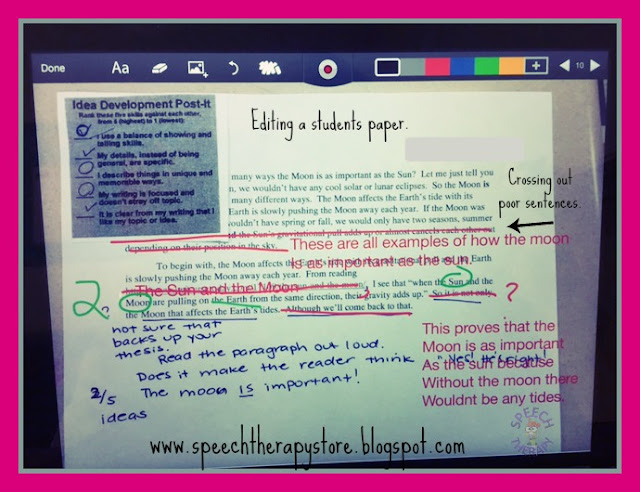 Done Aa 10
Idea Development Post-It
Rank these five skills against each other,
from 5 (highest) to 1 (lowest):
I use a balance of showing and
telling skills.
My details, instead of being
general, are specific.
I describe things in unique and
memorable ways.
My writing is focused and
doesn't stray off topic.
It is clear from my writing that I
like my topic or idea.
Editing a students paper.
many ways the Moon is as important as the Sun? Let me just tell you
n, we wouldn't have any cool solar or lunar eclipses. So the Moon is
many different ways. The Moon affects the Earth's tide with its
Earth is slowly pushing the Moon away each year. If the Moon was
ouldn't have spring or fall, we would only have two seasons, summer
d the Sun's gravitational pull adds up or almost cancels each other out
depending on their position in the sky.
Crossing out
poor sentences.
These are all examples of how the moon
is as important as the sun.
To begin with, the Moon affects the Earth's
the Earth
is slowly pushing the Moon away each year. From reading
The Sun and the Moon
I see that "when the Sun and the
Moon are pulling on the Earth from the same direction, their gravity adds up." So it is not only
the Moon that affects the Earth's tides. Although we'll come back to that.
2 ?
?
not sure that
backs up your
thesis.
Read the paragraph out loud.
Does it make the reader think "Yes! He's right!"
The moon IS important!
2/5
ideas
This proves that the
Moon is as important
As the sun because
Without the moon there
Wouldnt be any tides.
SPEECH
THERAPY
www.speechtherapystore.blogspot.com